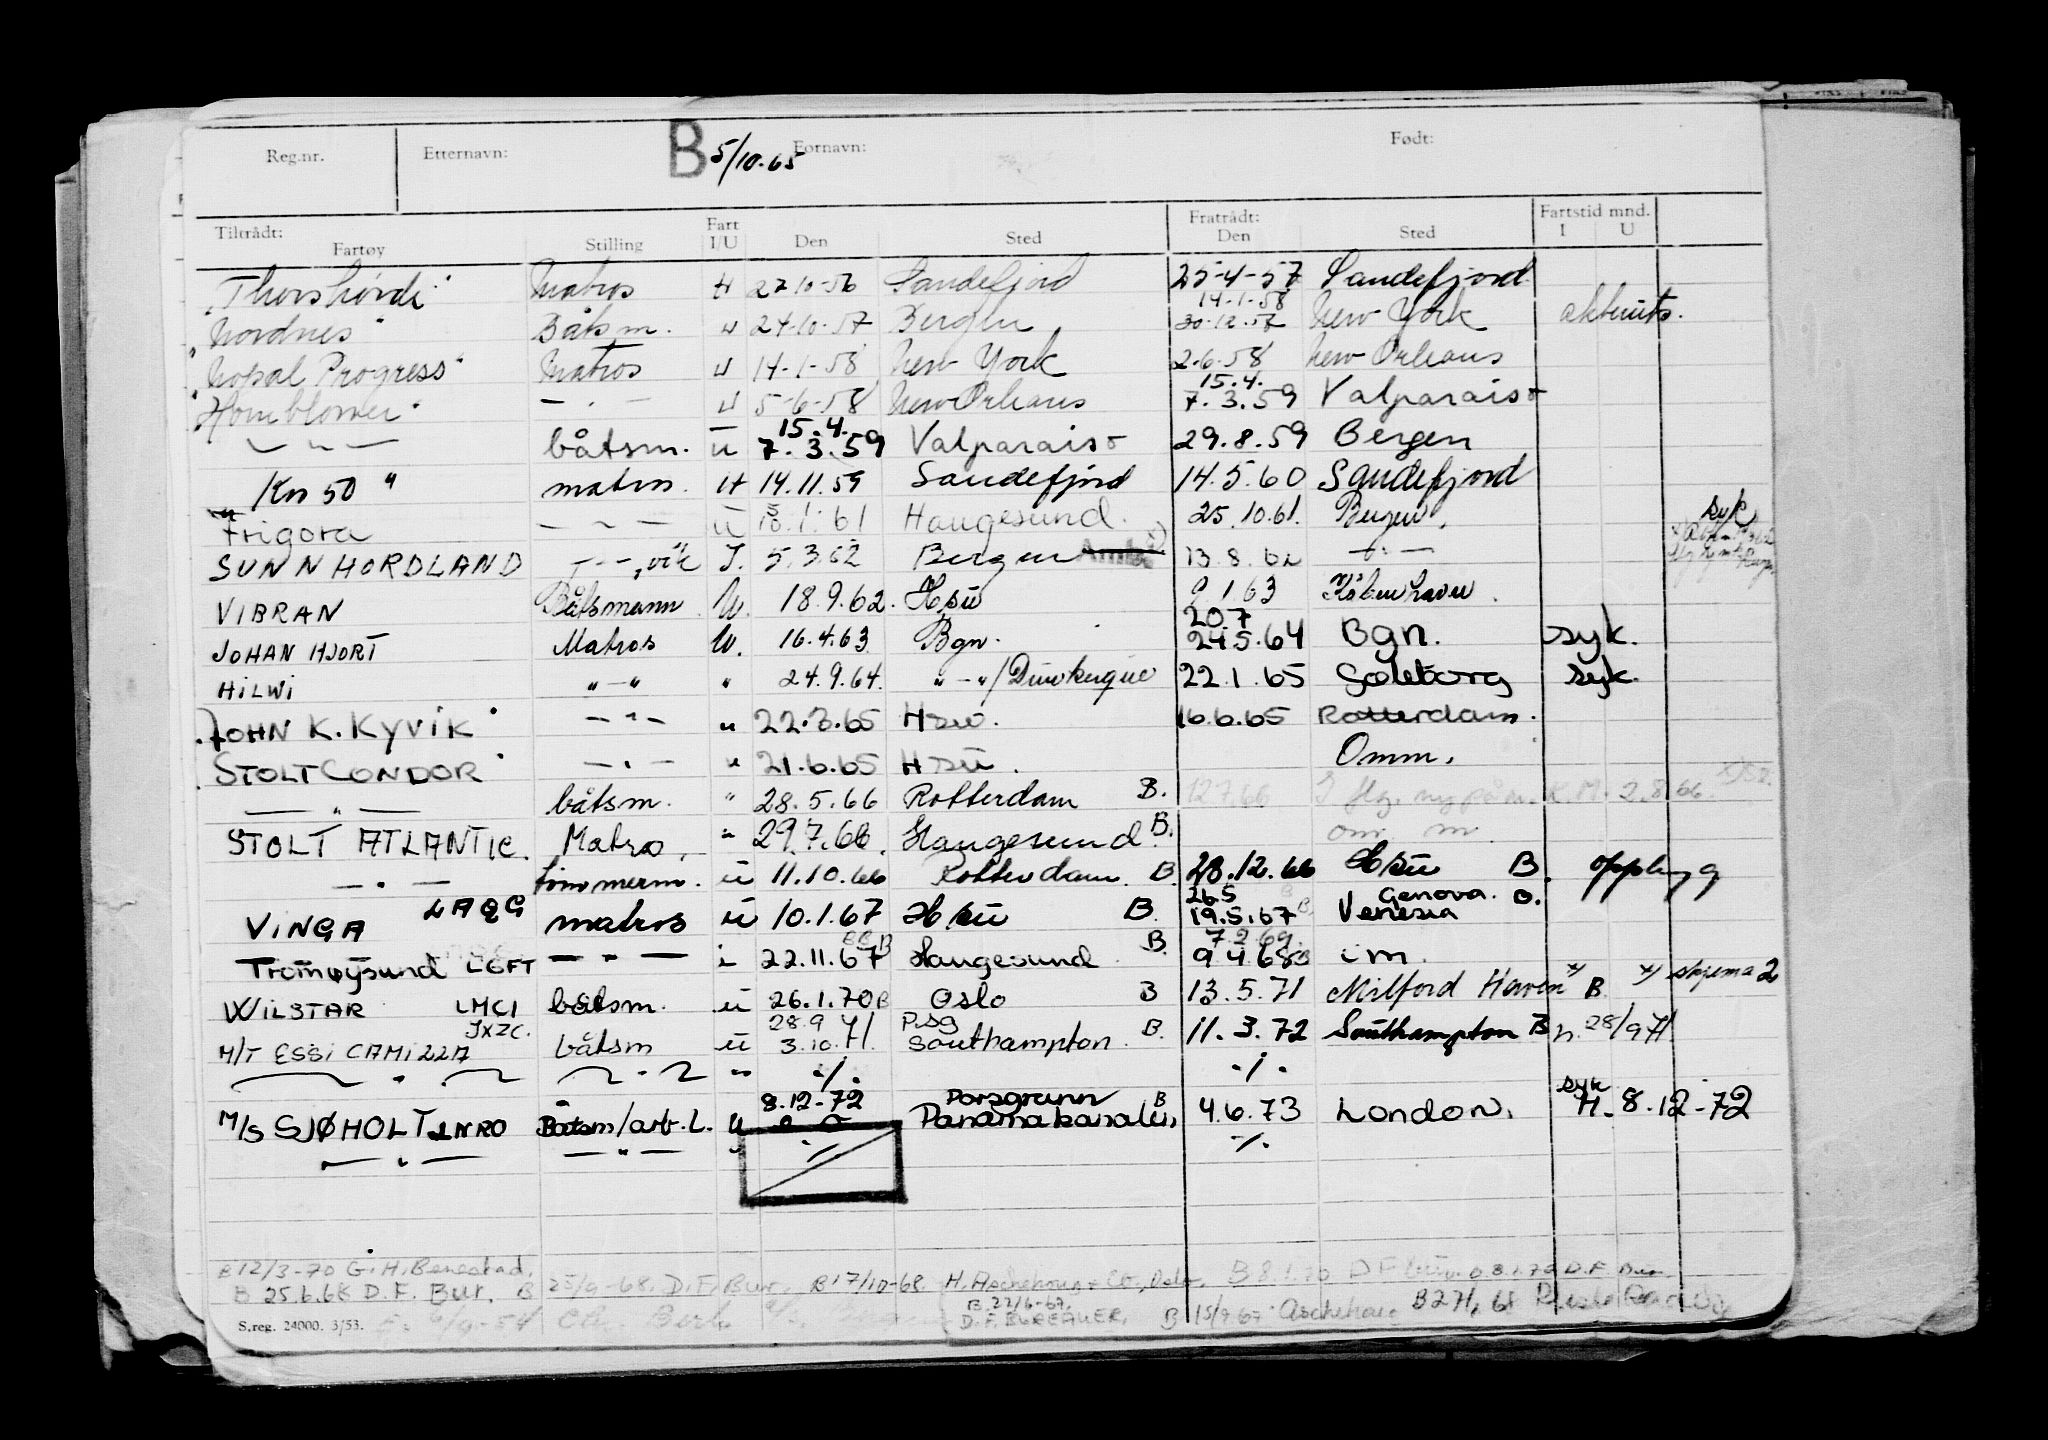 Reg.nr. Etternavn: B 5/10.65 Fornavn: Født:
Tiltrådt: Fartøy Stilling Fart I/U Den Sted Fratrådt: Den Sted Fartstid mnd. I U
"Thorshövdi" Matros H 27 10-56 Sandefjord 25-4-57 Sandefjord
14.1.58
"Nordnes" Båtsm. u 24.10.57 Bergen 30.12.57 New York
"Nopal Progress" Matros u 14-1-58 New York 2.6.58 New Orleans
15.4.
"Hornblower" — . — u 5-6-58 New Orleans 7.3.59 Valparaiso
15.4.
— " — båtsm. u 7.3.59 Valparaiso 29.8.59 Bergen
Kos 50 " matros. H 14.11.59 Sandefjord 14.5.60 Sandefjord
Frigora — " — u 10.1.61 Haugesund. 25.10.61. Bergen. syk
SUNNHORDLAND I. 5.3.62 Bergen 13.8.62 — " —
VIBRAN Båtsmann U. 18.9.62. Hsu 9 1 63 København.
20.7
JOHAN HJORT Matros U. 16.4.63 Bgn. 24.5.64 Bgn. syk.
HILWI " — " " 24.9.64. " — " / Dunkerque 22.1.65 Gøteborg syk.
"JOHN K. KYVIK" — " — " 22.3.65 Hsu. 16.6.65 Rotterdam.
STOLT CONDOR" — " — " 21.6.65 Hsu. Omm.
— " — båtsm. " 28.5.66 Rotterdam B. 12.7.66 2.8.66
STOLT ATLANTIC. Matros. " 29.7.66. Haugesund B. om m
— " — tømmerm. u 11.10.66 Rotterdam. B. 28.12.66 Hsu B. oppl
26.5 Genova. B.
VINGA LAQG matros u 10.1.67 Hsu B. 19.5.67 Venesia
7.2.69.
Tromøysund LGFT — " — i 22.11.67 Haugesund B. 9.4.68 i m.
WILSTAR LMCI båtsm. u 26.1.70 B Oslo B 13.5.71 Milford Haven x) B x) skjema 2
JXZC. 28.9 71. P.sg
M/T ESSI CAMILLA båtsm u 3.10.71. Southampton. B. 11.3.72 Southampton B h. 28/9 71.
— " — — " — " ./. ./.
8.12.72 Porsgrunn B syk
M/S SJØHOLT LNRO Båtsm/arb.L. U Panamakanalen, 4.6.73 London. H. 8.12-72
— " — — " — " ./. ./.
B 12/3-70 G.H. Benestad,
B 25.6.68 D.F. Bur. B 25/9-68. D.F. Bur. B 17/10-68. H. Aschehoug & Co, Oslo. B 8.1.70 D.F. Bur.
B. 22/6-67. D.F. BUREAUER. B 15/9 67 Aschehoug
S.reg. 24000. 3/53.